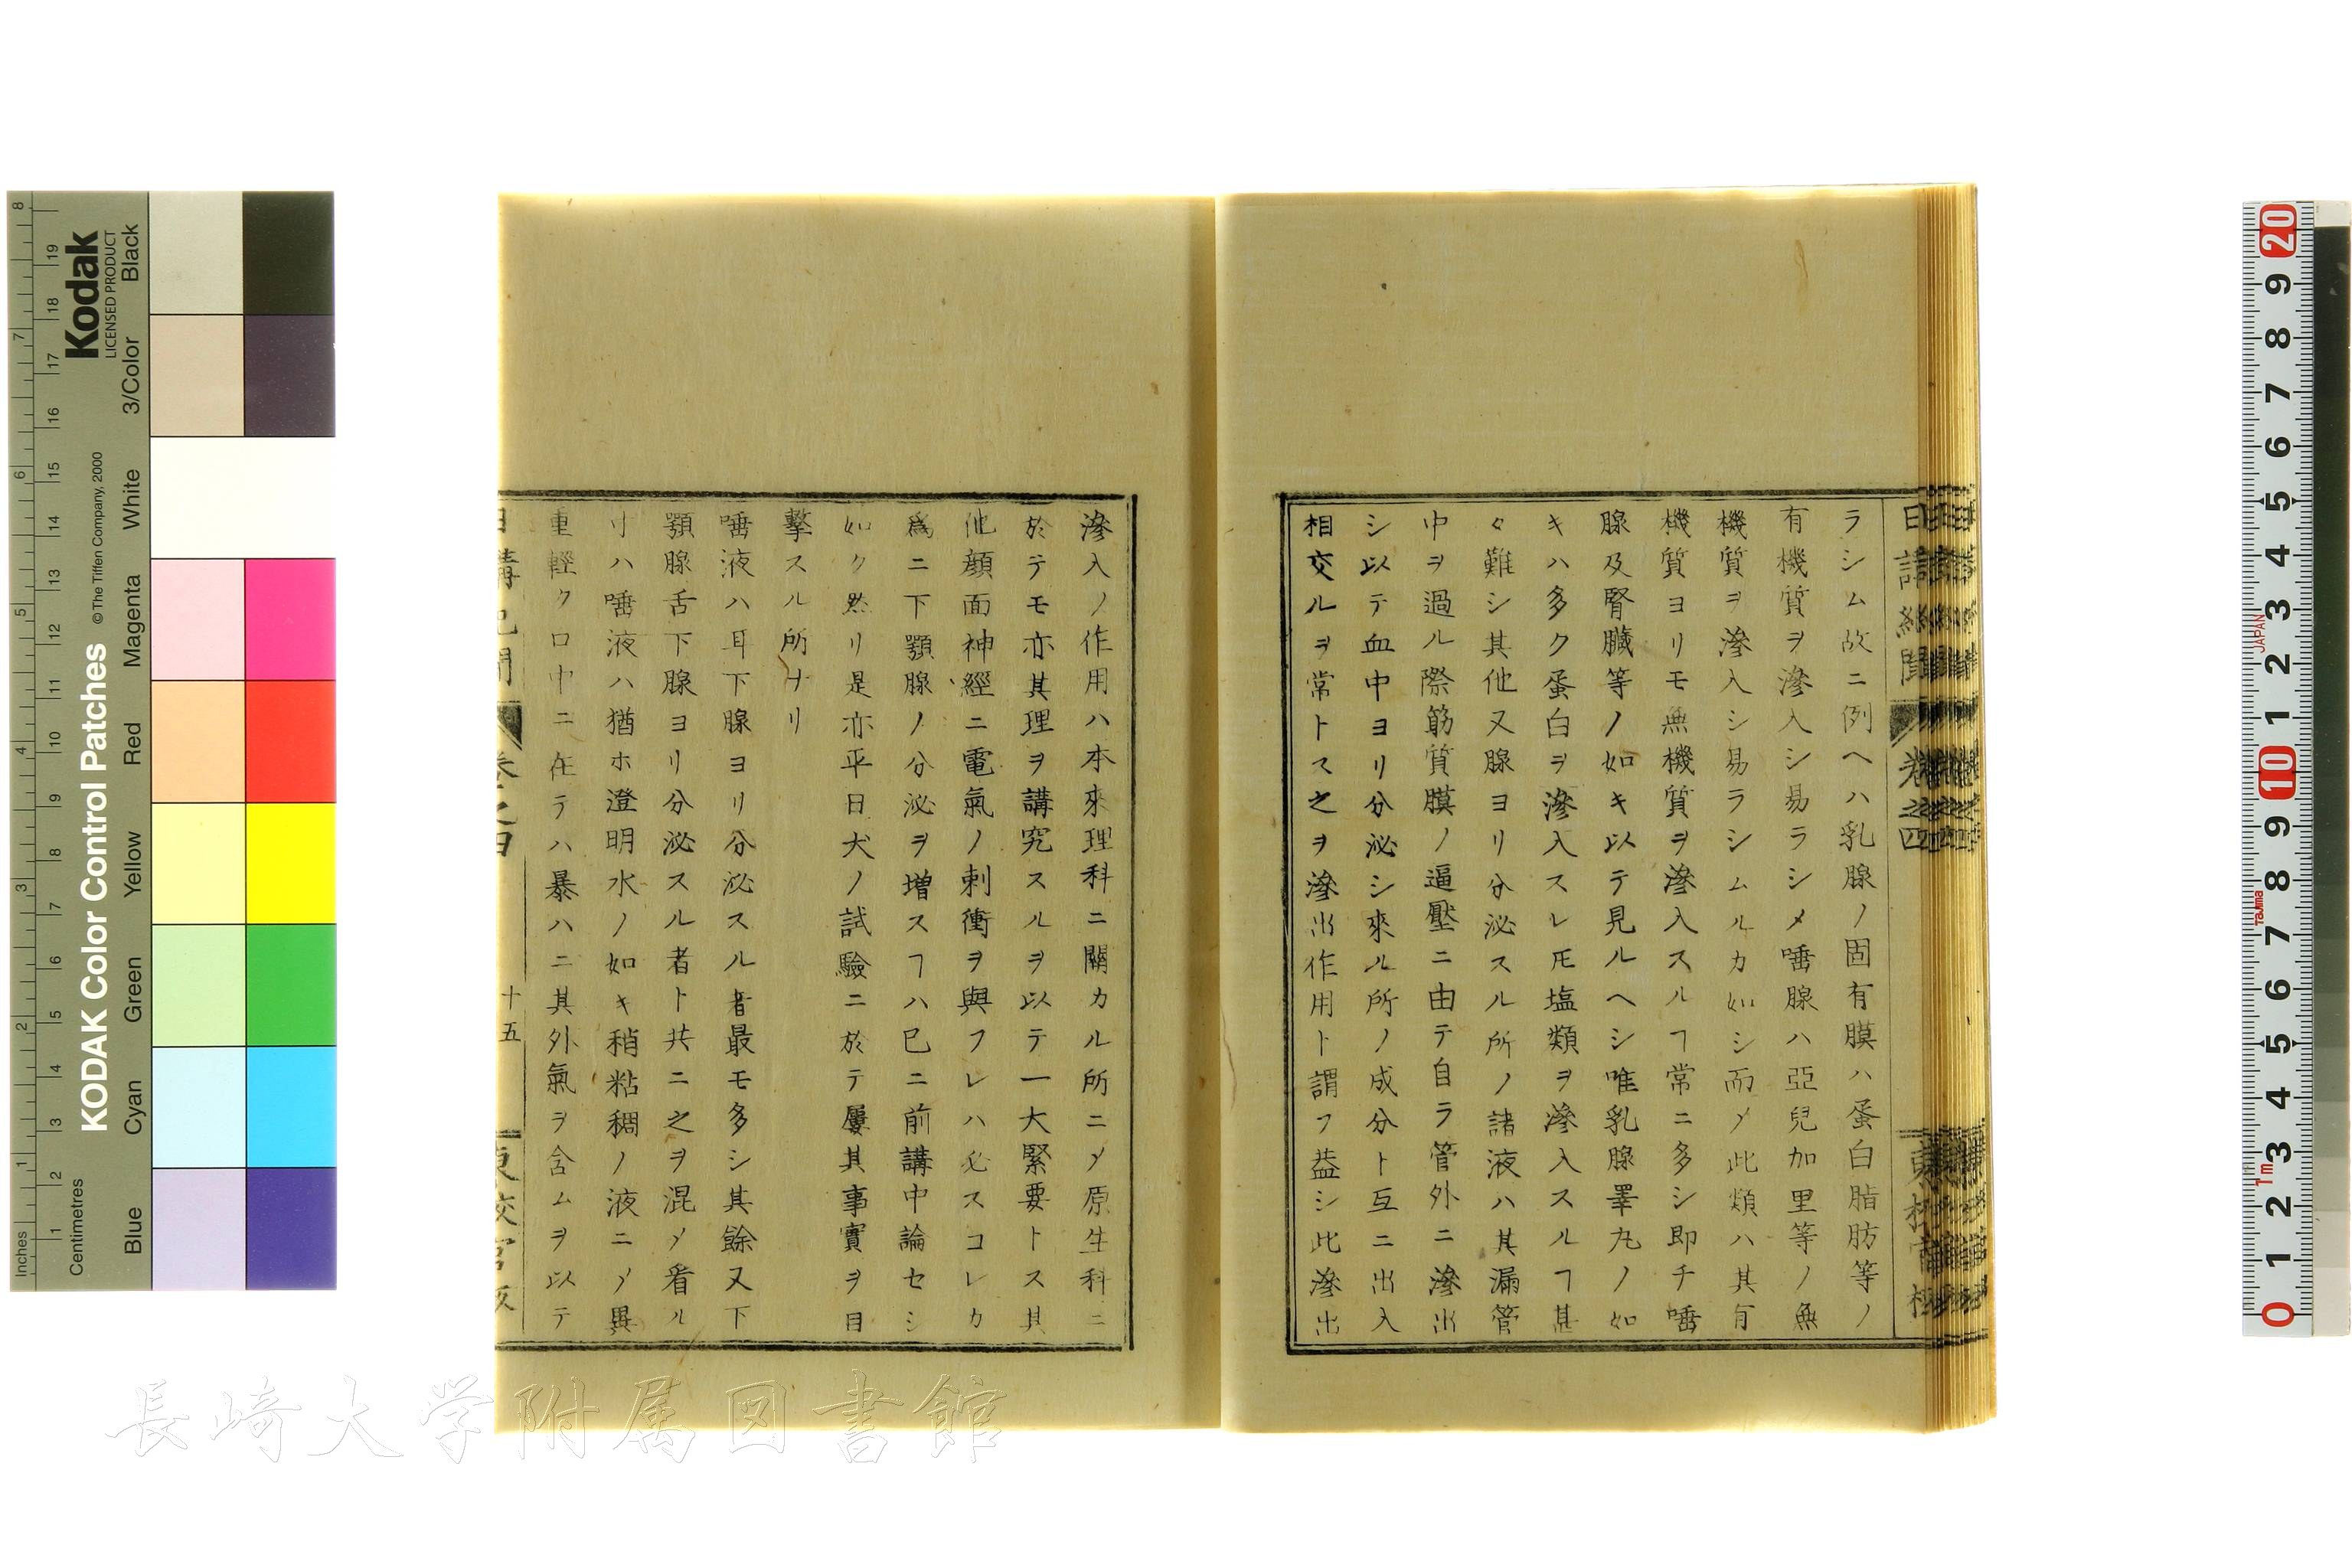 日講紀聞 卷之四
ラシム故ニ例ヘハ乳腺ノ固有膜ハ蛋白脂肪等ノ
有機質ヲ滲入シ易ラシメ唾腺ハ亞兒加里等ノ無
機質ヲ滲入シ易ラシムルカ如シ而〆此類ハ其有
機質ヨリモ無機質ヲ滲入スルヿ常ニ多シ即チ唾
腺及腎臓等ノ如キ以テ見ルヘシ唯乳腺睪丸ノ如
キハ多ク蛋白ヲ滲入スレ𪜈塩類ヲ滲入スルヿ甚
々難シ其他又腺ヨリ分泌スル所ノ諸液ハ其漏管
中ヲ過ル際筋質膜ノ逼壓ニ由テ自ラ管外ニ滲出
シ以テ血中ヨリ分泌シ來ル所ノ成分ト互ニ出入
相交ルヲ常トス之ヲ滲出作用ト謂フ葢シ此滲出
滲入ノ作用ハ本來理科ニ關カル所ニ〆原生科ニ
於テモ亦其理ヲ講究スルヲ以テ一大緊要トス其
他顔面神經ニ電氣ノ刺衝ヲ與フレハ必スコレカ
爲ニ下顎腺ノ分泌ヲ增スヿハ已ニ前講中論セシ
如ク然リ是亦平日犬ノ試驗ニ於テ屢其事實ヲ目
擊スル所ナリ
唾液ハ耳下腺ヨリ分泌スル者最モ多シ其餘又下
顎腺舌下腺ヨリ分泌スル者ト共ニ之ヲ混〆看ル
寸ハ唾液ハ猶ホ澄明水ノ如キ稍粘稠ノ液ニ〆異
重輕ク口中ニ在テハ暴ハニ其外氣ヲ含ムヲ以テ
十五
Kodak
LICENSED PRODUCT
KODAK Color Control Patches
© The Tiffen Company, 2000
Inches
Centimetres
Blue Cyan Green Yellow Red Magenta White 3/Color Black
JAPAN
Tajima
1m
長崎大学附属図書館